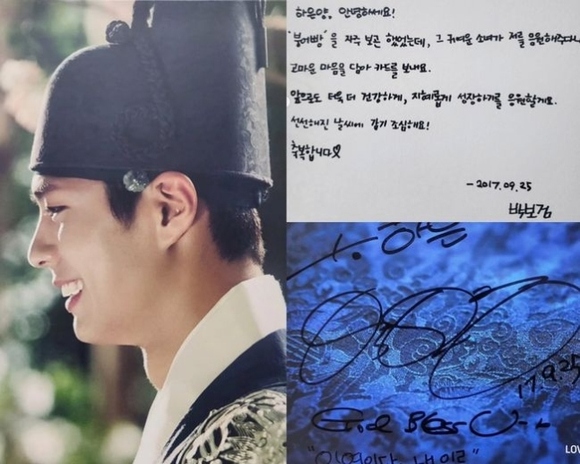 하은양. 안녕하세요!
'붕어빵'을 자주 보곤 했었는데, 그 귀여운 소녀가 저를 응원해주다니
고마운 마음을 담아 카드를 보내요.
앞으로도 더욱 더 건강하게, 지혜롭게 성장하기를 응원할게요.
선선해진 날씨에 감기 조심해요!
축복합니다♡
- 2017. 09. 25
박보검
하은
17.9.25
God Bless U
LOV